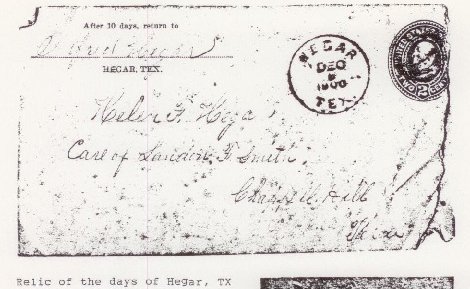 After 10 days, return to
Alfred Hegar
HEGAR, TEX.
HEGAR
DEC
1900
TEX
2
Helen F. Hega
Care of Landon F. Smith.
Chappell Hill
Texas
Relic of the days of Hegar, TX